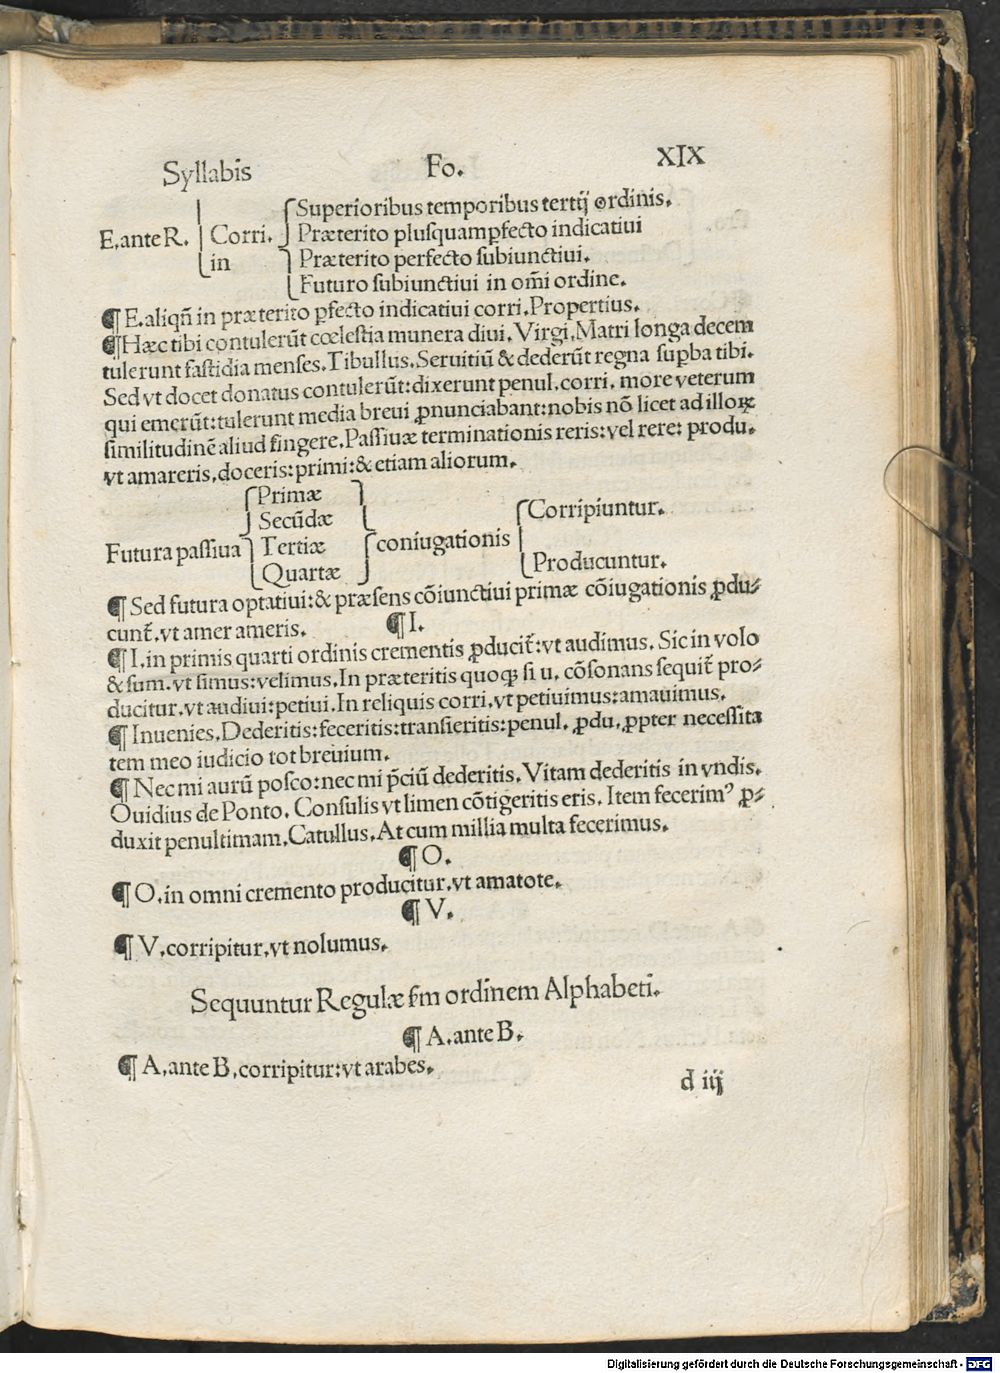 Syllabis Fo. XIX
Superioribus temporibus tertij ordinis.
E. ante R. Corri. Præterito plusquamꝑfecto indicatiui
in Præterito perfecto subiunctiui.
Futuro subiunctiui in om̃i ordine.
¶ E. aliqñ in præterito ꝑfecto indicatiui corri. Propertius.
¶ Hæc tibi contulerūt cœlestia munera diui. Virgi. Matri longa decem
tulerunt fastidia menses. Tibullus. Seruitiū & dederūt regna suꝑba tibi.
Sed vt docet donatus contulerūt: dixerunt penul. corri. more veterum
qui emerūt: tulerunt media breui ꝓnunciabant: nobis nō licet ad illoꝝ
similitudinē aliud fingere. Passiuæ terminationis reris: vel rere: produ.
vt amareris, doceris: primi: & etiam aliorum.
Primæ
Secūdæ Corripiuntur.
Futura passiua Tertiæ coniugationis
Quartæ Producuntur.
¶ Sed futura optatiui: & præsens cōiunctiui primæ cōiugationis ꝓdu-
cunt̃. vt amer ameris. ¶ I.
¶ I. in primis quarti ordinis crementis ꝓducit̃: vt audimus. Sic in volo
& sum. vt simus: velimus. In præteritis quoqꝫ si u. cōsonans sequit̃ pro-
ducitur. vt audiui: petiui. In reliquis corri. vt petiuimus: amauimus.
¶ Inuenies. Dederitis: feceritis: transieritis: penul. ꝓdu. ꝓpter necessita
tem meo iudicio tot breuium.
¶ Nec mi aurū posco: nec mi p̃ciū dederitis. Vitam dederitis in vndis.
Ouidius de Ponto. Consulis vt limen cōtigeritis eris. Item fecerimꝰ ꝓ-
duxit penultimam. Catullus. At cum millia multa fecerimus.
¶ O.
¶ O. in omni cremento producitur. vt amatote.
¶ V.
¶ V. corripitur. vt nolumus.
Sequuntur Regulæ s̃m ordinem Alphabeti.
¶ A. ante B.
¶ A, ante B, corripitur: vt arabes.
d iij
Digitalisierung gefördert durch die Deutsche Forschungsgemeinschaft - DFG